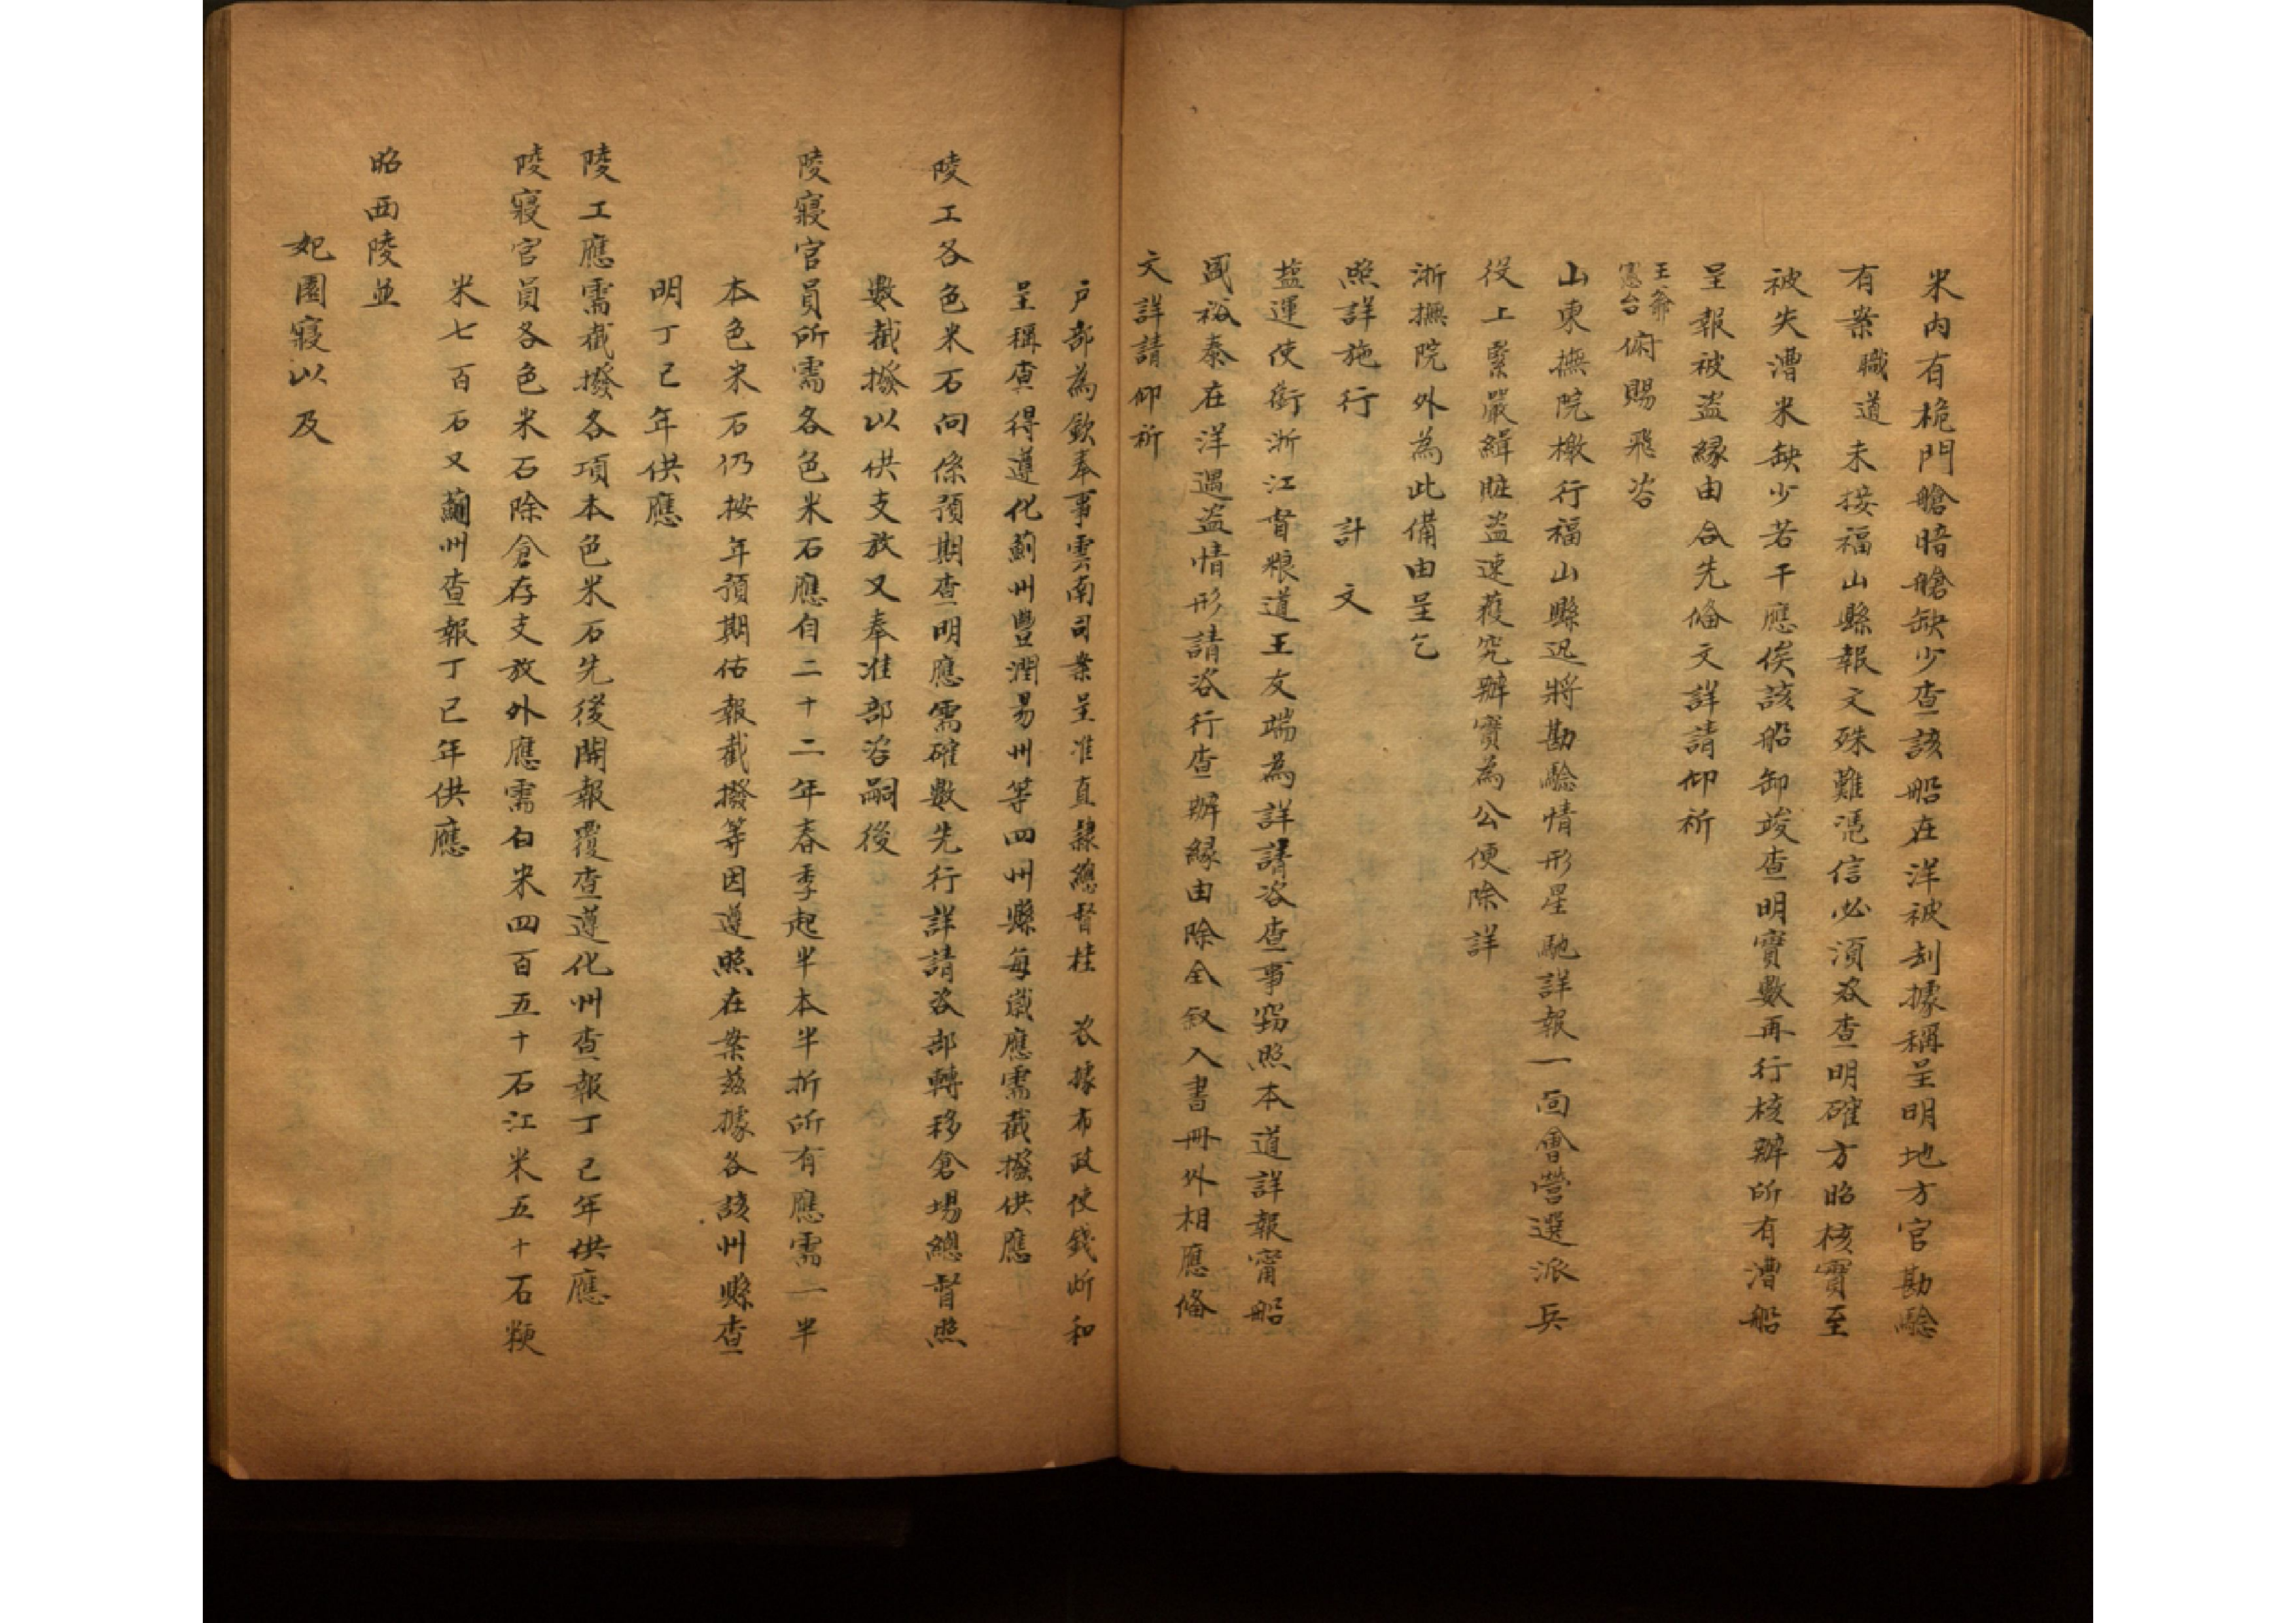 米內有桅門艙暗艙缺少查該船在洋被刦據稱呈明地方官勘驗
有案職道未接福山縣報文殊難憑信必須咨查明確方昭核實至
被失漕米缺少若干應俟該船卸竣查明實數再行核辦所有漕船
呈報被盜緣由合先俻文詳請仰祈
王爺
憲台俯賜飛咨
山東撫院檄行福山縣迅將勘驗情形星馳詳報一面會營選派兵
役上緊嚴緝賍盜速獲究辦實為公便除詳
浙撫院外為此備由呈乞
照詳施行 計 文
盐運使銜浙江督粮道王友端為詳請咨查事窃照本道詳報甯船
盛裕泰在洋遇盜情形請咨行查辦緣由除全叙入書冊外相應俻
文詳請仰祈
户部為欽奉事雲南司案呈准直隸總督桂 咨據布政使錢炘和
呈稱查得遵化薊州豐潤易州等四州縣每歲應需截撥供應
陵工各色米石向係預期查明應需確數先行詳請咨部轉移倉場總督照
數截撥以供支放又奉准部咨嗣後
陵寢官員所需各色米石應自二十二年春季起半本半折所有應需一半
本色米石仍按年預期估報截撥等因遵照在案茲據各該州縣查
明丁巳年供應
陵工應需截撥各項本色米石先後開報覆查遵化州查報丁巳年供應
陵寢官員各色米石除倉存支放外應需白米四百五十石江米五十石粳
米七百石又薊州查報丁巳年供應
昭西陵並
妃園寢以及